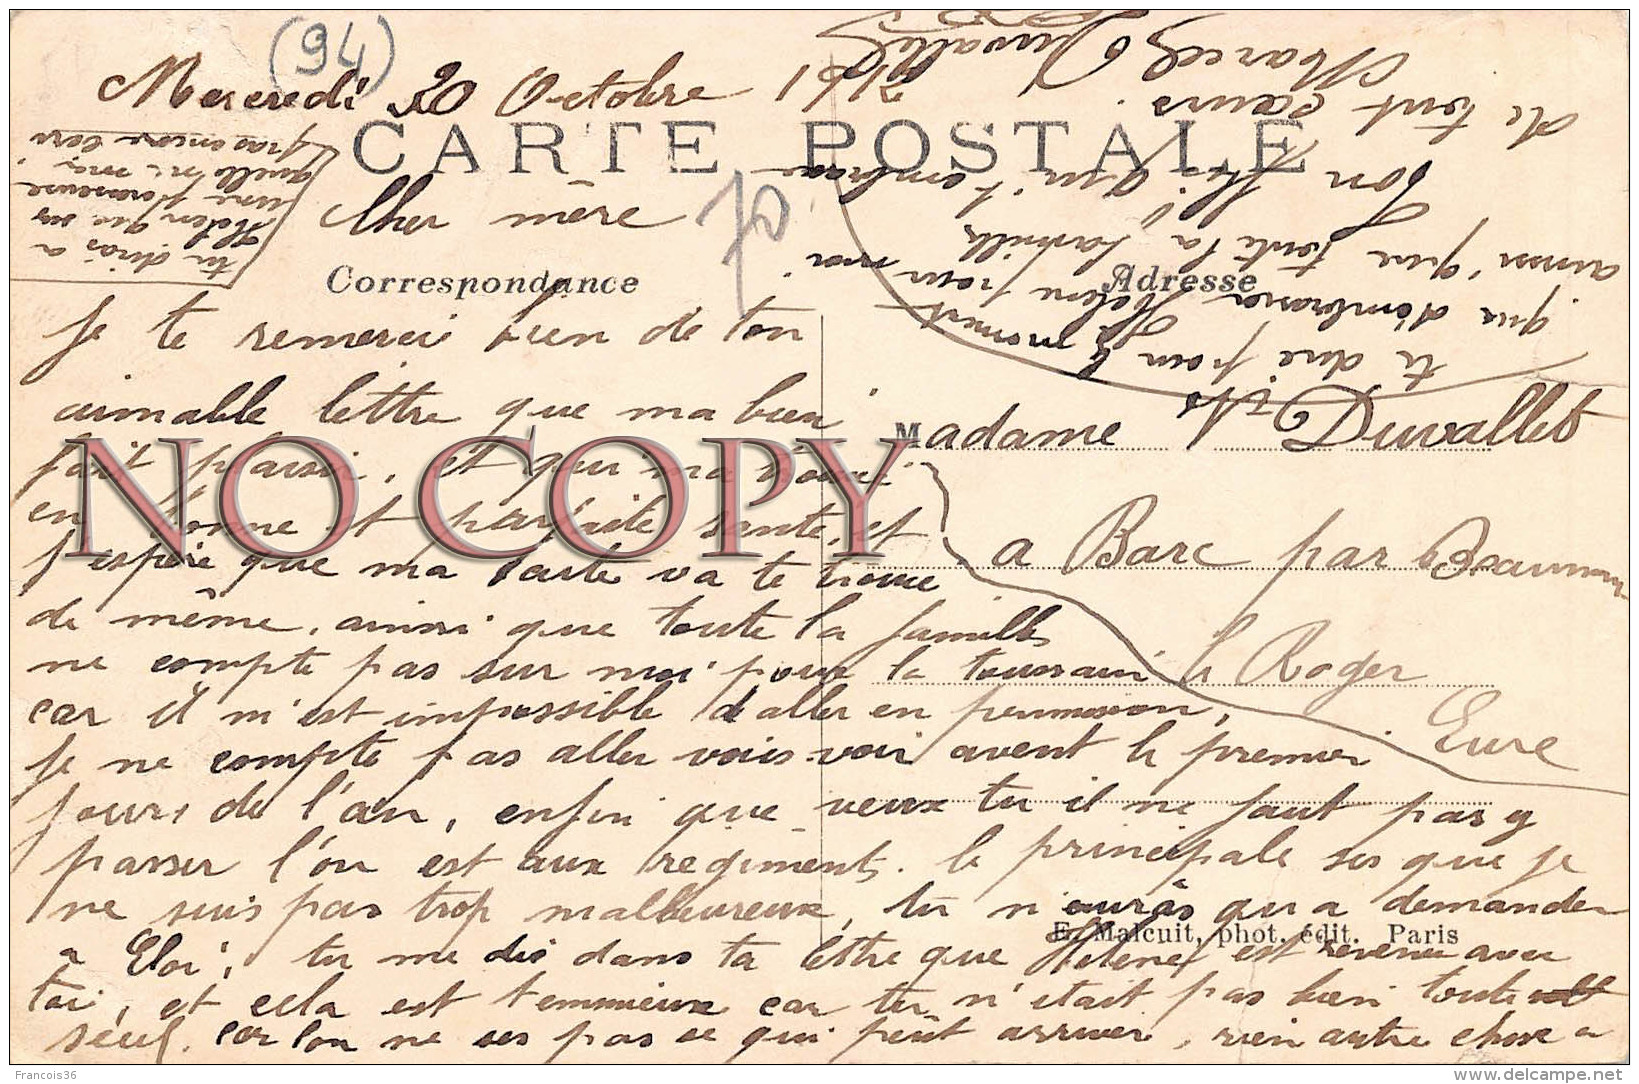 (94)
Mercredi 20 Octobre
CARTE POSTALE
70
Cher mère
Correspondance
Adresse
je te remerci bien de ton
aimable lettre que ma bien
fait plaisir, et qui ma trouvé
en bonne et parfaite santé, et
j'espère que ma carte va te trouve
de même, ainsi que toute la famille
ne compte pas sur moi pour la toussain
car il m'est impossible d'aller en permission,
je ne compte pas aller vois voir avent le premier
jours de l'an, enfin que veux tu il ne faut pas y
passer l'on est aux regiments. le principale ses que je
ne suis pas trop malheureux, tu n'auras qu'a demander
a Eloi, tu me dis dans ta lettre que Helene est revenu avec
toi, et cela est temmieux car tu n'était pas bien toute
seul. car l'on ne ses pas se qui peut arriver, rien autre chose a
ti dire pour le moment
que d'embrasser Helene pour moi
ainsi que toute la famille
Ton fils qui t'embrasse
de tout cœurs.
Marcel Duvallet
tu diras a
Helen que ses
une parasseuse
quelle ne ma
pas encore ecri
Madame Vve Duvallet
a Barc par Beaumon
le Roger
Eure
E. Malcuit, phot. édit. Paris
NO COPY
Francois36
delcampe.net